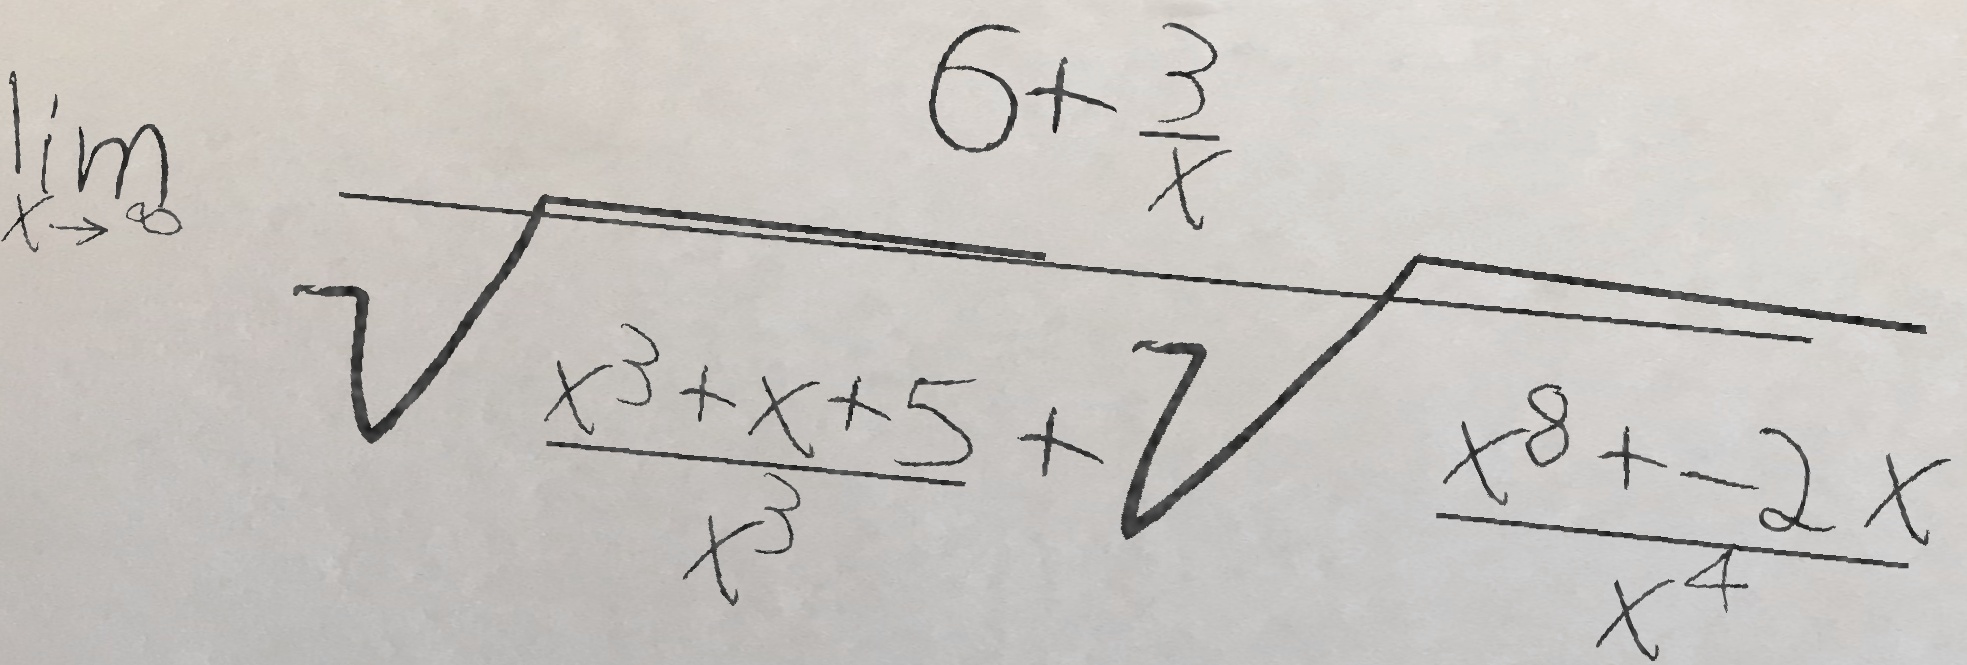 \lim_{x \to \infty} \frac{6 + \frac{3}{x}}{\sqrt{\frac{x^3 + x + 5}{x^3}} + \sqrt{\frac{x^8 + -2x}{x^4}}}